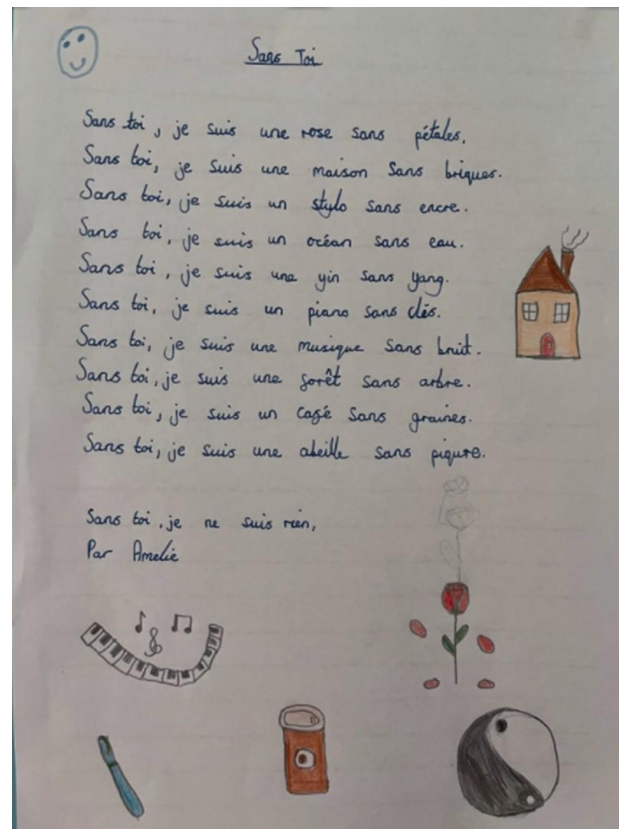 Sans Toi
Sans toi, je suis une rose sans pétales.
Sans toi, je suis une maison sans briques.
Sans toi, je suis un stylo sans encre.
Sans toi, je suis un océan sans eau.
Sans toi, je suis une yin sans yang.
Sans toi, je suis un piano sans clés.
Sans toi, je suis une musique sans bruit.
Sans toi, je suis une forêt sans arbre.
Sans toi, je suis un café sans graines.
Sans toi, je suis une abeille sans piqure.
Sans toi, je ne suis rien,
Par Amelie